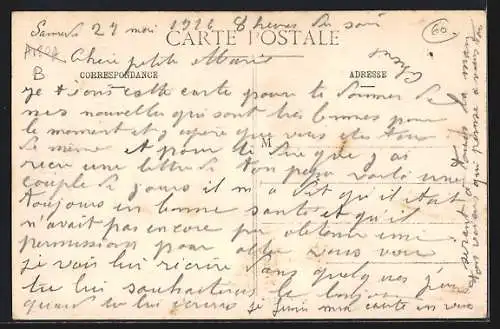 Samedi 27 mai 1916 8 heures du soir
CARTE POSTALE
Chère petite Marie
B
60
CORRESPONDANCE
ADRESSE
Je t'écris cette carte pour te donner de
mes nouvelles qui sont très bonnes pour
le moment et j'espère que vous êtes tous
M
de même et pour te dire que j'ai
reçu une lettre de ton papa voilà une
couple de jours il m'a dit qu'il était
toujours en bonne santé et qu'il
n'avait pas encore pu obtenir une
permission pour aller vous voir
je vais lui récrire dans quelques jours
tu lui souhaiteras le bonjour
quand tu lui écriras je finis ma carte en vous
serrant à tous la main
ton cousin qui pense à vous